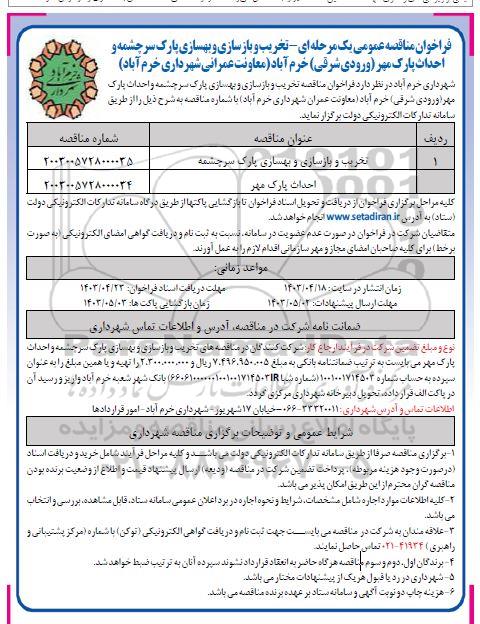 فراخوان مناقصه عمومی یک مرحله ای - تخریب و بازسازی و بهسازی پارک سرچشمه و
احداث پارک مهر (ورودی شرقی) خرم آباد (معاونت عمرانی شهرداری خرم آباد)
شهرداری خرم آباد در نظر دارد فراخوان مناقصه تخریب و بازسازی و بهسازی پارک سرچشمه و احداث پارک
مهر (ورودی شرقی) خرم آباد (معاونت عمران شهرداری خرم آباد) با شماره مناقصه به شرح ذیل را از طریق
سامانه تدارکات الکترونیکی دولت برگزار نماید.
ردیف عنوان مناقصه شماره مناقصه
۱ تخریب و بازسازی و بهسازی پارک سرچشمه ۲۰۰۳۰۰۵۷۲۸۰۰۰۰۳۵
احداث پارک مهر ۲۰۰۳۰۰۵۷۲۸۰۰۰۰۳۴
کلیه مراحل برگزاری فراخوان از دریافت و تحویل اسناد فراخوان تا بازگشایی پاکتها از طریق درگاه سامانه تدارکات الکترونیکی دولت
(ستاد) به آدرس www.setadiran.ir انجام خواهد شد.
متقاضیان شرکت در فراخوان در صورت عدم عضویت در سامانه، نسبت به ثبت نام و دریافت گواهی امضای الکترونیکی (به صورت
برخط) برای کلیه صاحبان امضای مجاز و مهر سازمانی اقدام لازم را به عمل آورند.
مواعد زمانی:
زمان انتشار در سایت: ۱۴۰۳/۰۴/۱۸ مهلت دریافت اسناد فراخوان: ۱۴۰۳/۰۴/۲۳
مهلت ارسال پیشنهادات: ۱۴۰۳/۰۵/۰۲ زمان بازگشایی پاکت ها: ۱۴۰۳/۰۵/۰۳
ضمانت نامه شرکت در مناقصه، آدرس و اطلاعات تماس شهرداری
نوع و مبلغ تضمین شرکت در فرآیند ارجاع کار: شرکت کنندگان در مناقصه های تخریب و بازسازی و بهسازی پارک سرچشمه و احداث
پارک مهر می بایست به ترتیب ضمانتنامه بانکی به مبلغ ۷.۴۹۶.۹۵۰.۰۰۵ ریال و ۲.۳۰۰.۰۰۰.۰۰۰ را تهیه و یا همین مبلغ را به عنوان
سپرده به حساب شماره ۱۰۰۱۰۰۱۷۱۴۵۰۳ (شماره شبا بانک شهر شعبه خرم آباد واریز و رسید آن
در پاکت الف قرار داده، تحویل دبیرخانه شهرداری مرکزی گردد.
اطلاعات تماس و آدرس شهرداری: ۳۳۳۲۰۰۱۱-۰۶۶ خیابان ۱۷ شهریور - شهرداری خرم آباد - امور قراردادها
شرایط عمومی و توضیحات برگزاری مناقصه شهرداری
۱- برگزاری مناقصه صرفا از طریق سامانه تدارکات الکترونیکی دولت می باشد و کلیه مراحل فرآیند شامل خرید و دریافت اسناد
(در صورت وجود هزینه مربوطه)، پرداخت تضمین شرکت در مناقصه (ودیعه) ارسال پیشنهاد قیمت و اطلاع از وضعیت برنده بودن
مناقصه گران محترم از این طریق امکان پذیر می باشد.
۲- کلیه اطلاعات موارد اجاره شامل مشخصات، شرایط و نحوه اجاره در برد اعلان عمومی سامانه ستاد، قابل مشاهده، بررسی و انتخاب
می باشد.
۳- علاقه مندان به شرکت در مناقصه می بایست جهت ثبت نام و دریافت گواهی الکترونیکی (توکن) با شماره (مرکز پشتیبانی و
راهبری) ۴۱۹۳۴-۰۲۱ تماس حاصل نمایند.
۴- برندگان اول، دوم و سوم مناقصه هرگاه حاضر به انعقاد قرارداد نشوند سپرده آنان به ترتیب ضبط خواهد شد.
۵- شهرداری در رد یا قبول هر یک از پیشنهادات مختار می باشد.
۶- هزینه چاپ دو نوبت آگهی و سامانه ستاد بر عهده برنده مناقصه می باشد.